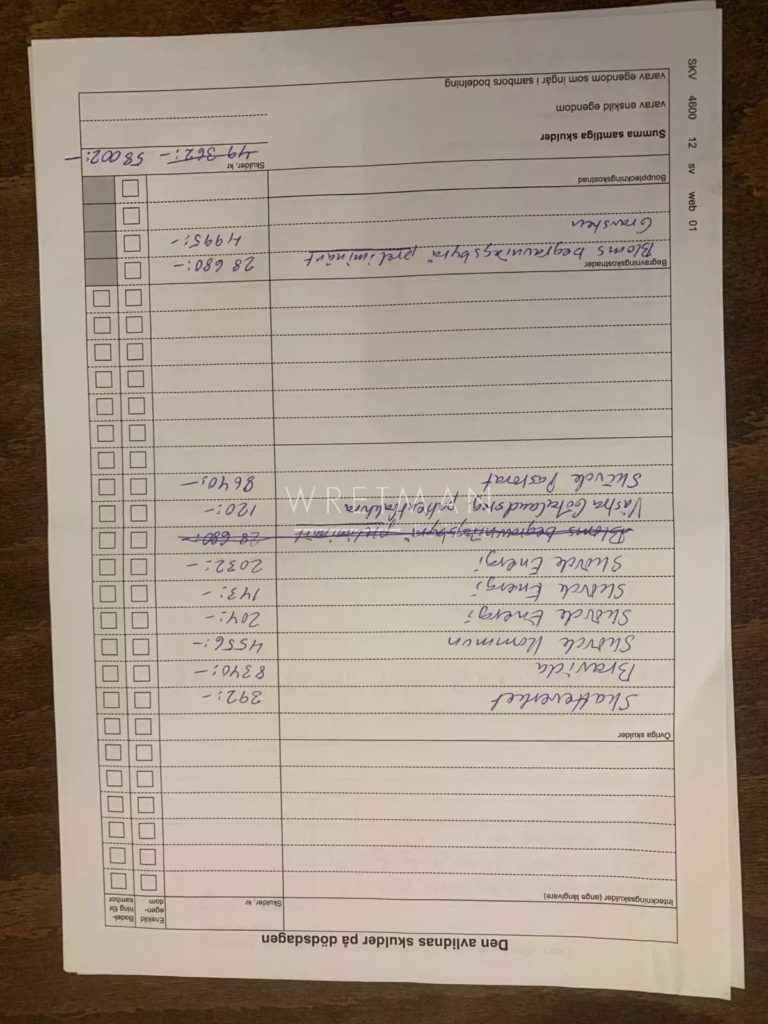 Den avlidnas skulder på dödsdagen
Inteckningsskulder (ange långivare)
Skulder, kr
Enskild egen-dom
Bodel-ning för sambor
Övriga skulder
Skatteverket 392:-
Bravida 8340:-
Skövde Kommun 4556:-
Skövde Energi 204:-
Skövde Energi 143:-
Skövde Energi 2032:-
Bloms begravningsbyrå preliminärt 28 680:-
Västra Götalandsreg patientfaktura 120:-
WRETMAN
Skövde Pastorat 8640:-
Begravningskostnader
Bloms begravningsbyrå preliminärt 28 680:-
Gravsten 4995:-
Bouppteckningskostnad
Skulder, kr
Summa samtliga skulder 49 362:- 58 002:-
varav enskild egendom
varav egendom som ingår i sambors bodelning
SKV 4600 12 sv web 01